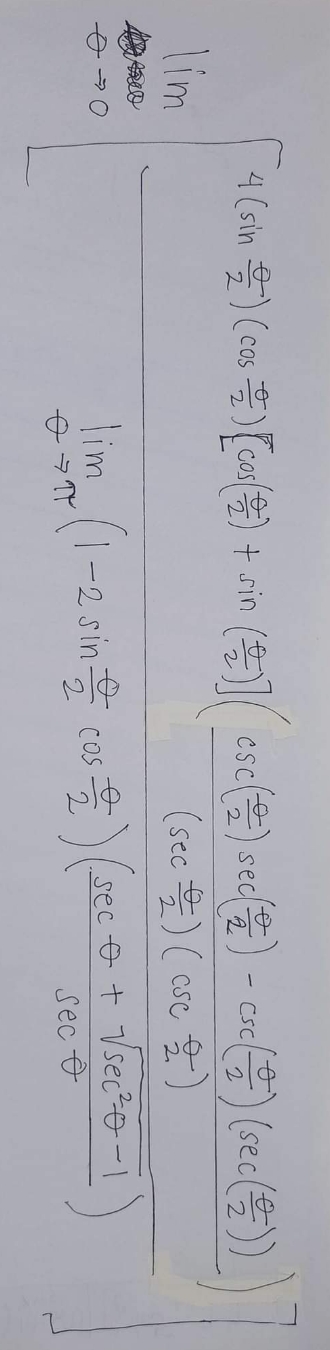 lim θ→0 [ 4 (sin θ/2) (cos θ/2) [cos(θ/2) + sin (θ/2)] ( csc(θ/2) sec(θ/2) - csc(θ/2) (sec(θ/2))
(sec θ/2) (csc θ/2) )
lim θ→π (1 - 2 sin θ/2 cos θ/2) ( sec θ + √sec²θ-1
sec θ ) ]